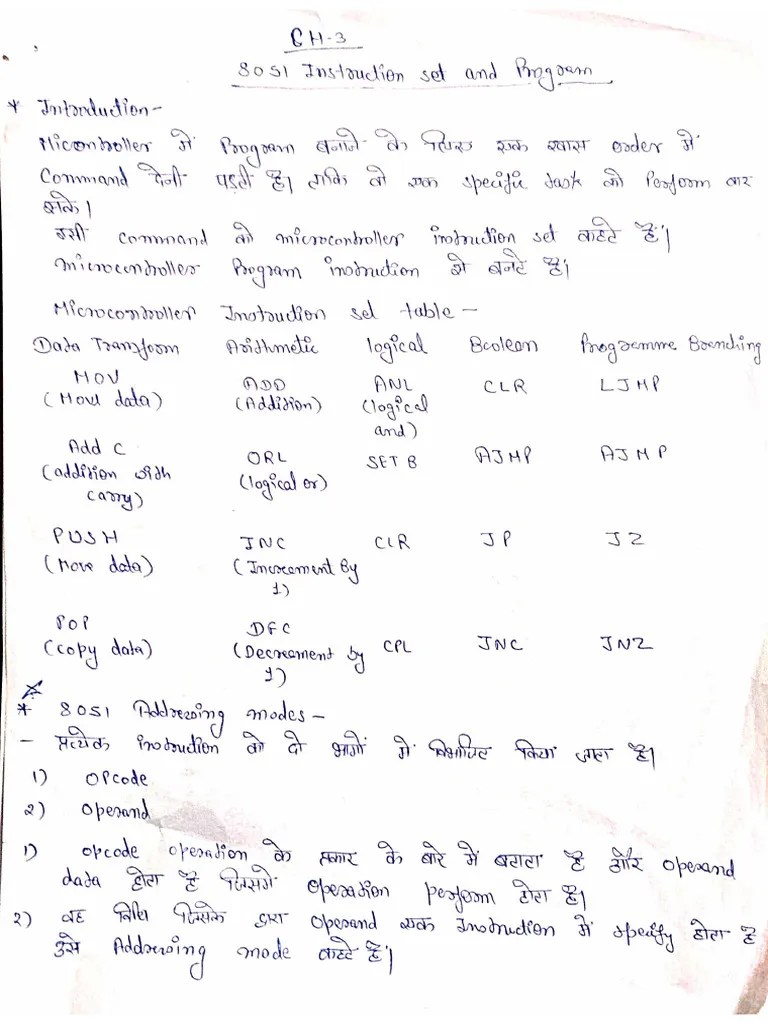 CH-3
8051 Instruction set and Program
* Introduction-
Micontroller में Program बनाने के लिए एक खास order में
Command देनी पड़ती है। ताकि वो एक specific task को Perform कर
सके।
इसी command को microcontroller instruction set कहते हैं।
Microcontroller Program instruction से बनते है।
Microcontroller Instruction set table -
Data Transform Arithmetic logical Boolean Programme Branching
MOV ADD ANL CLR LJMP
(Move data) (Addition) (logical
and)
Add C ORL SET B AJMP AJMP
(addition with (logical or)
carry)
PUSH INC CLR JP JZ
(Move data) (Increment By
1)
POP DEC CPL JNC JNZ
(copy data) (Decreament by
1)
* 8051 Addressing modes -
- प्रत्येक instruction को दो भागों में विभाजित किया जाता है।
1) OPcode
2) Operand
1) opcode operation के प्रकार के बारे में बताता है और operand
data होता है जिसमें operation perform होता है।
2) वह विधि जिसके द्वारा operand एक Instruction में specify होता है
उसे Addressing mode कहते हैं।